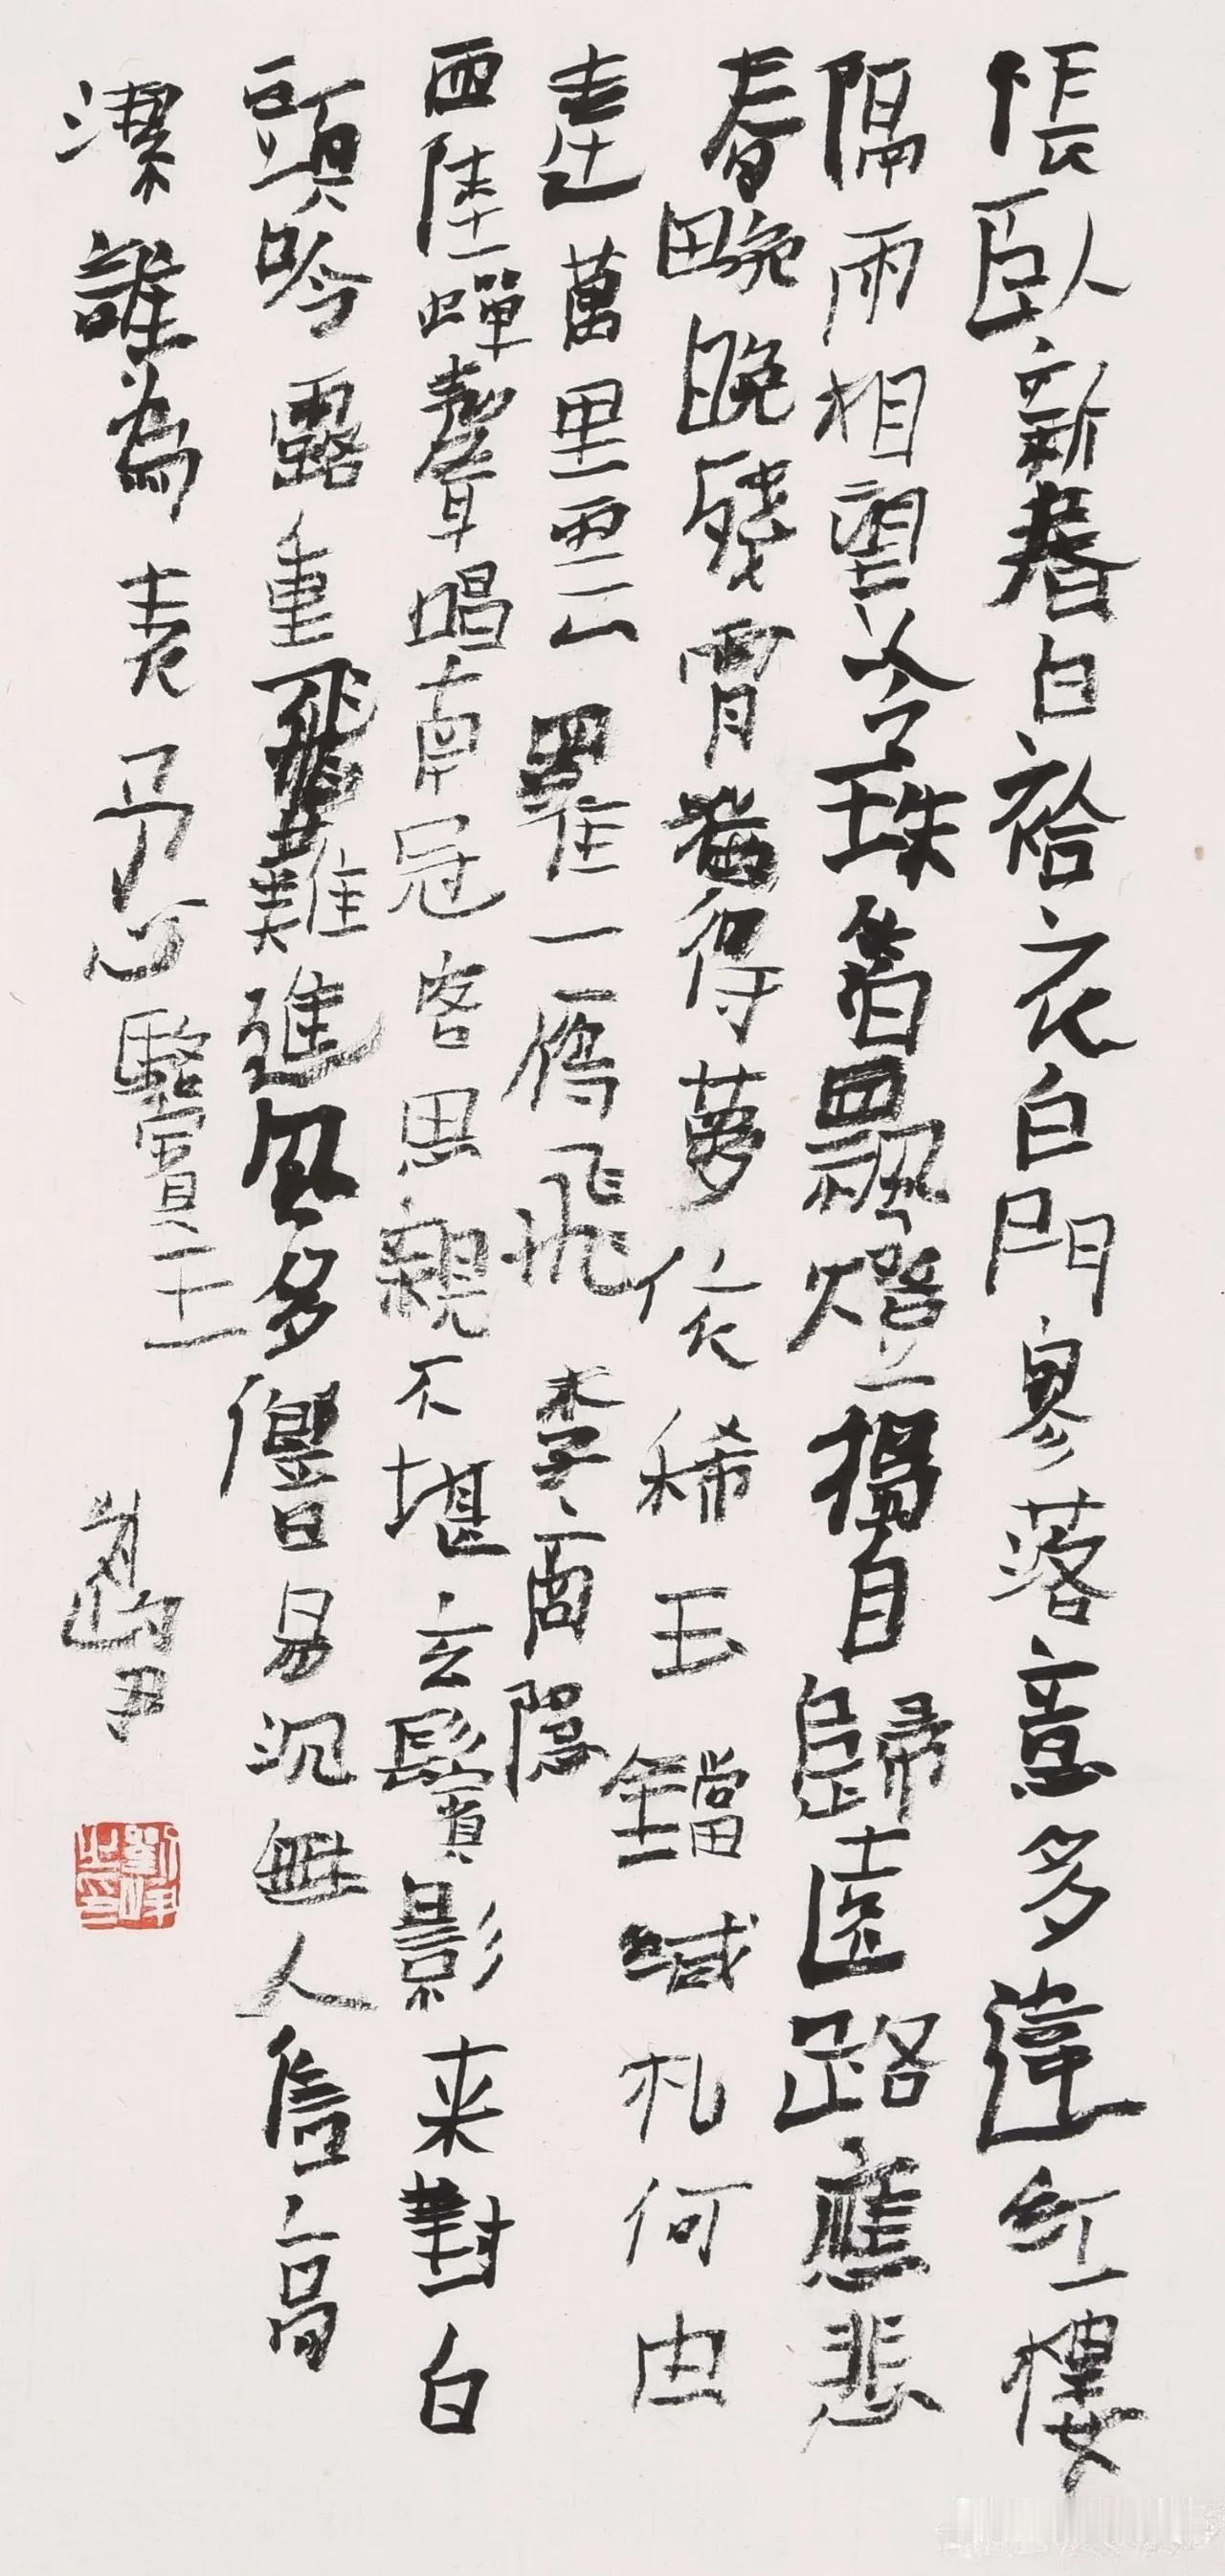 悵臥新春白袷衣白門寥落意多違紅樓
隔雨相望冷珠箔飄燈獨自歸遠路應悲
春畹晚殘宵猶得夢依稀玉鐺緘札何由
達萬里雲羅一雁飛 李商隱
西陸蟬聲唱南冠客思親不堪玄鬢影来對白
頭吟露重飛難進風多響易沉無人信高
潔誰為表予心 駱賓王